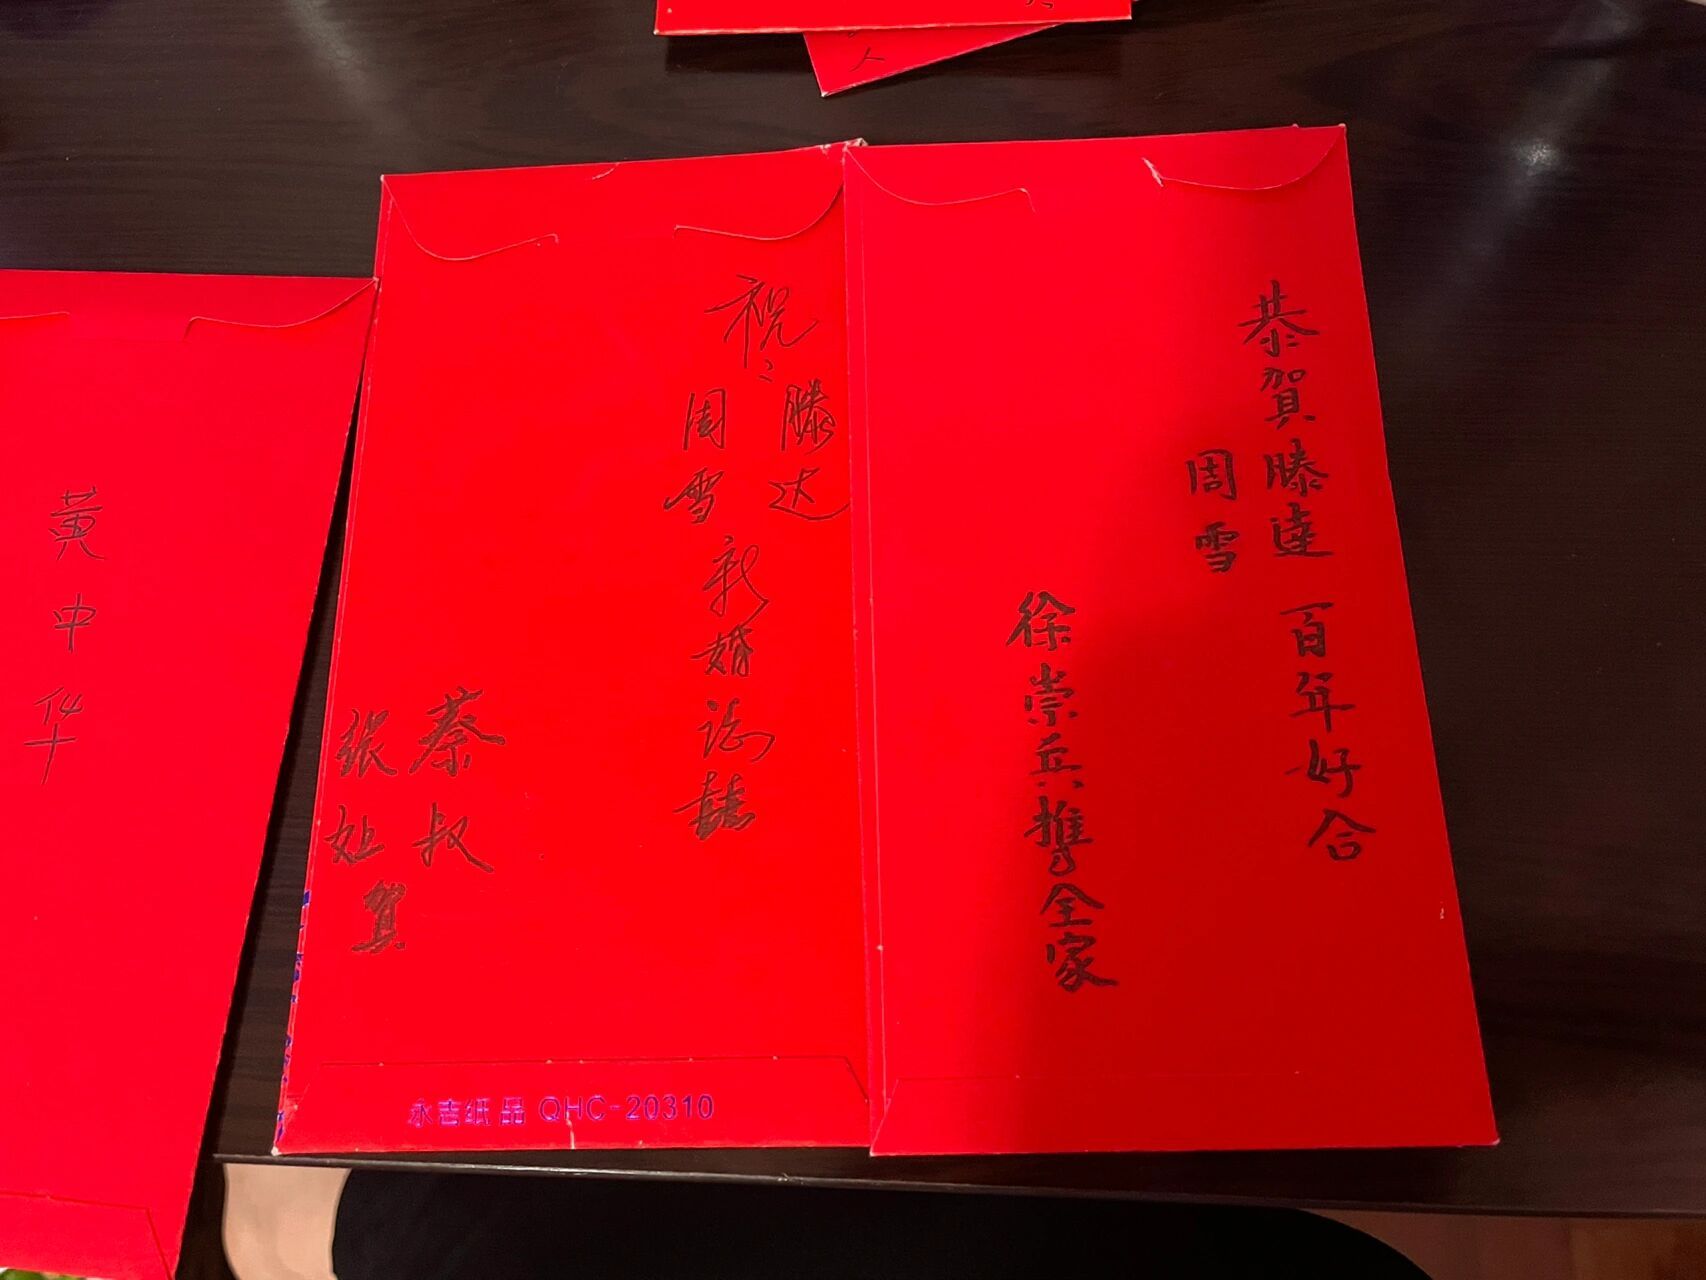 人
恭賀滕達 百年好合
周雪
徐崇兵攜全家
祝:
滕达
周雪
新婚誌囍
蔡叔
张姐
賀
永吉纸品 QHC-20310
黄中华